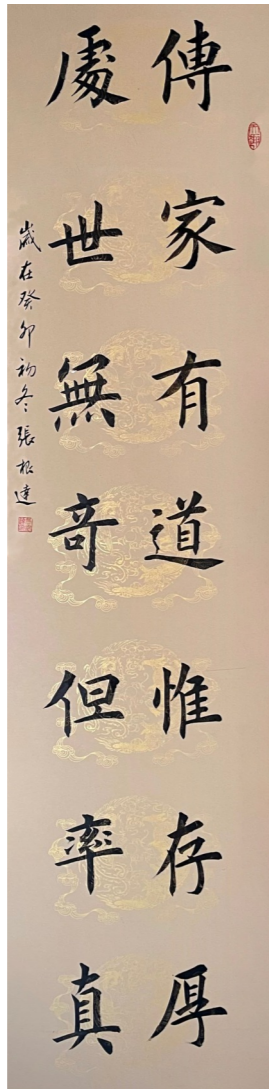 傳家有道惟存厚
處世無奇但率真
歲在癸卯初冬張根達